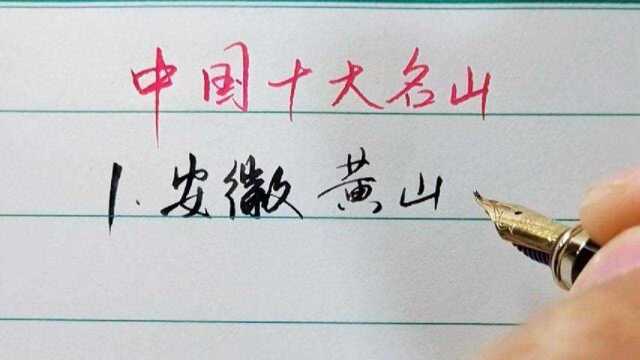 中国十大名山
1.安徽黄山